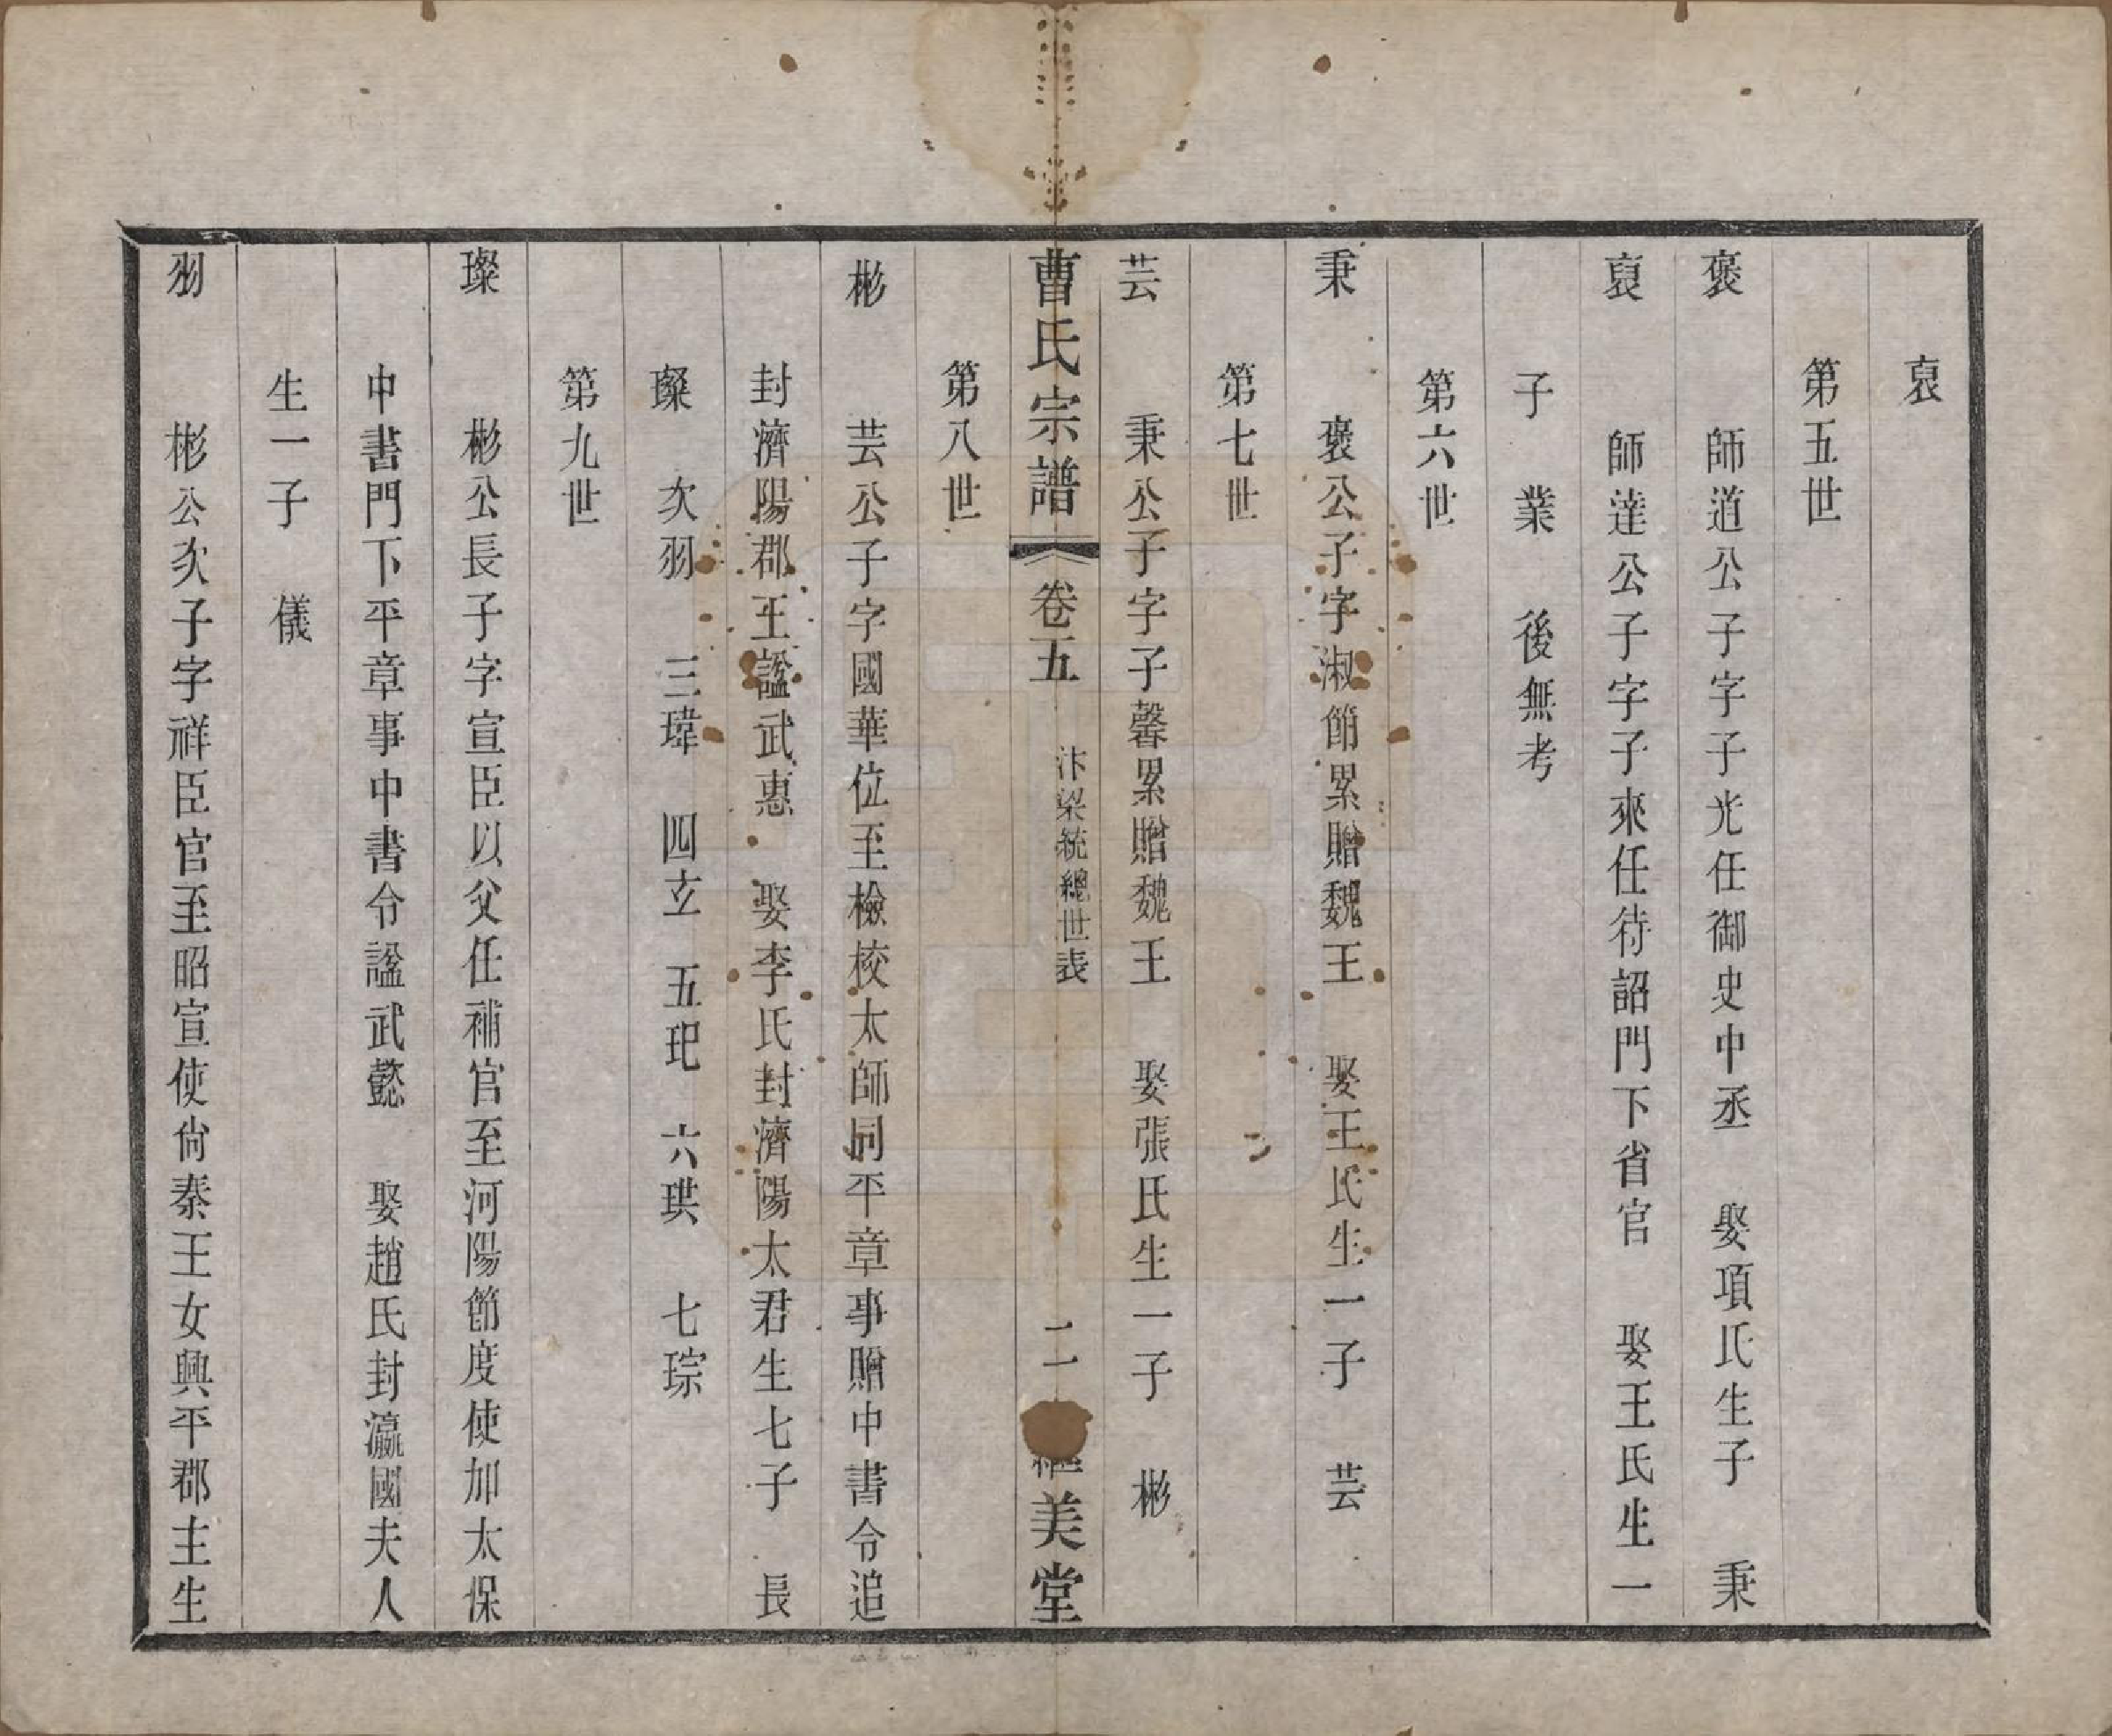 裒
第五世
褒　師道公子字子光任御史中丞　娶項氏生子　秉
裒　師達公子字子來任待詔門下省官　娶王氏生一
子　業　後無考
第六世
秉　褒公子字淑節累贈魏王　娶王氏生一子　芸
第七世
芸　秉公子字子馨累贈魏王　娶張氏生一子　彬
曹氏宗譜　卷五　汴梁統總世表　二　繼美堂
第八世
彬　芸公子字國華位至檢校太師同平章事贈中書令追
封濟陽郡王諡武惠　娶李氏封濟陽太君生七子　長
璨　次羽　三瑋　四玄　五玘　六珙　七琮
第九世
璨　彬公長子字宣臣以父任補官至河陽節度使加太保
中書門下平章事中書令諡武懿　娶趙氏封瀛國夫人
生一子　儀
羽　彬公次子字祥臣官至昭宣使尙秦王女興平郡主生